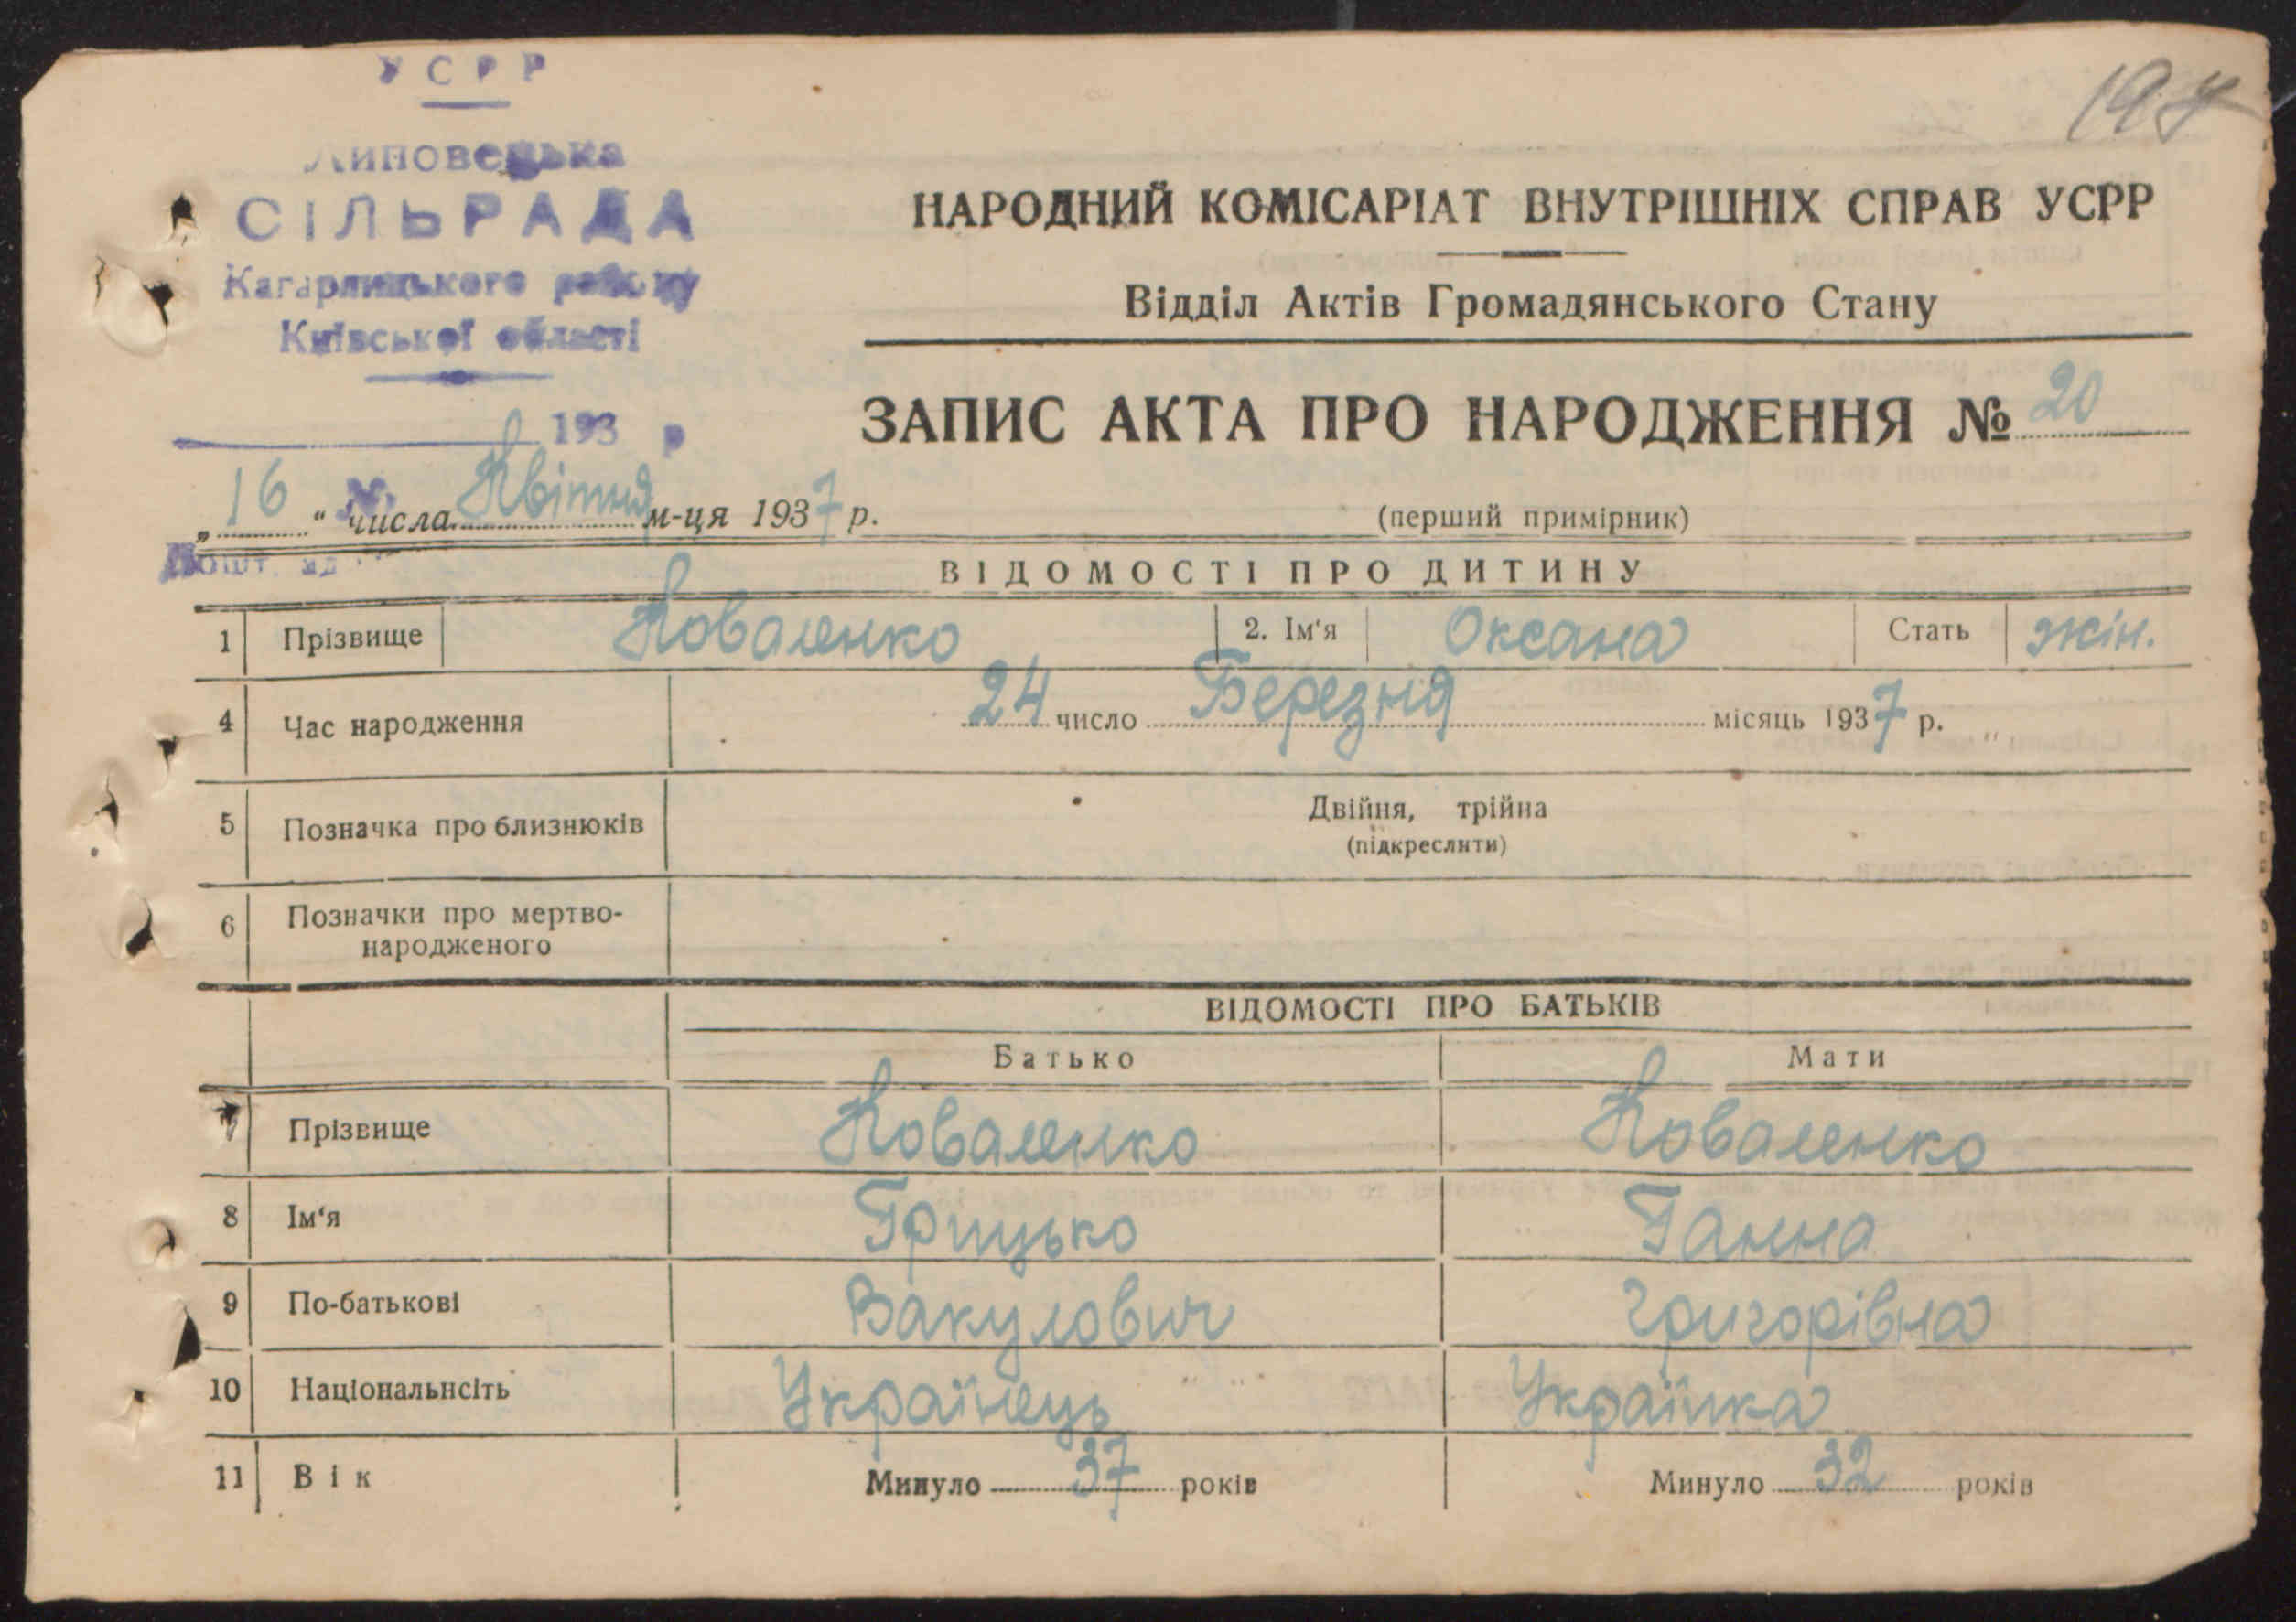 УСРР
Липовецька
СІЛЬРАДА
Кагарлицького району
Київської області
193 р
№
Пошт. ад
19
НАРОДНИЙ КОМІСАРІАТ ВНУТРІШНІХ СПРАВ УСРР
Відділ Актів Громадянського Стану
ЗАПИС АКТА ПРО НАРОДЖЕННЯ № 20
„16“ числа Квітня м-ця 1937 р.
(перший примірник)
ВІДОМОСТІ ПРО ДИТИНУ
1 Прізвище Коваленко 2. Ім'я Оксана Стать жін.
4 Час народження 24 число Березня місяць 1937 р.
5 Позначка про близнюків Двійня, трійна
(підкреслити)
6 Позначки про мертво-
народженого
ВІДОМОСТІ ПРО БАТЬКІВ
Батько Мати
7 Прізвище Коваленко Коваленко
8 Ім'я Грицько Ганна
9 По-батькові Вакулович Григорівна
10 Національнсіть Українець Українка
11 Вік Минуло 37 років Минуло 32 років